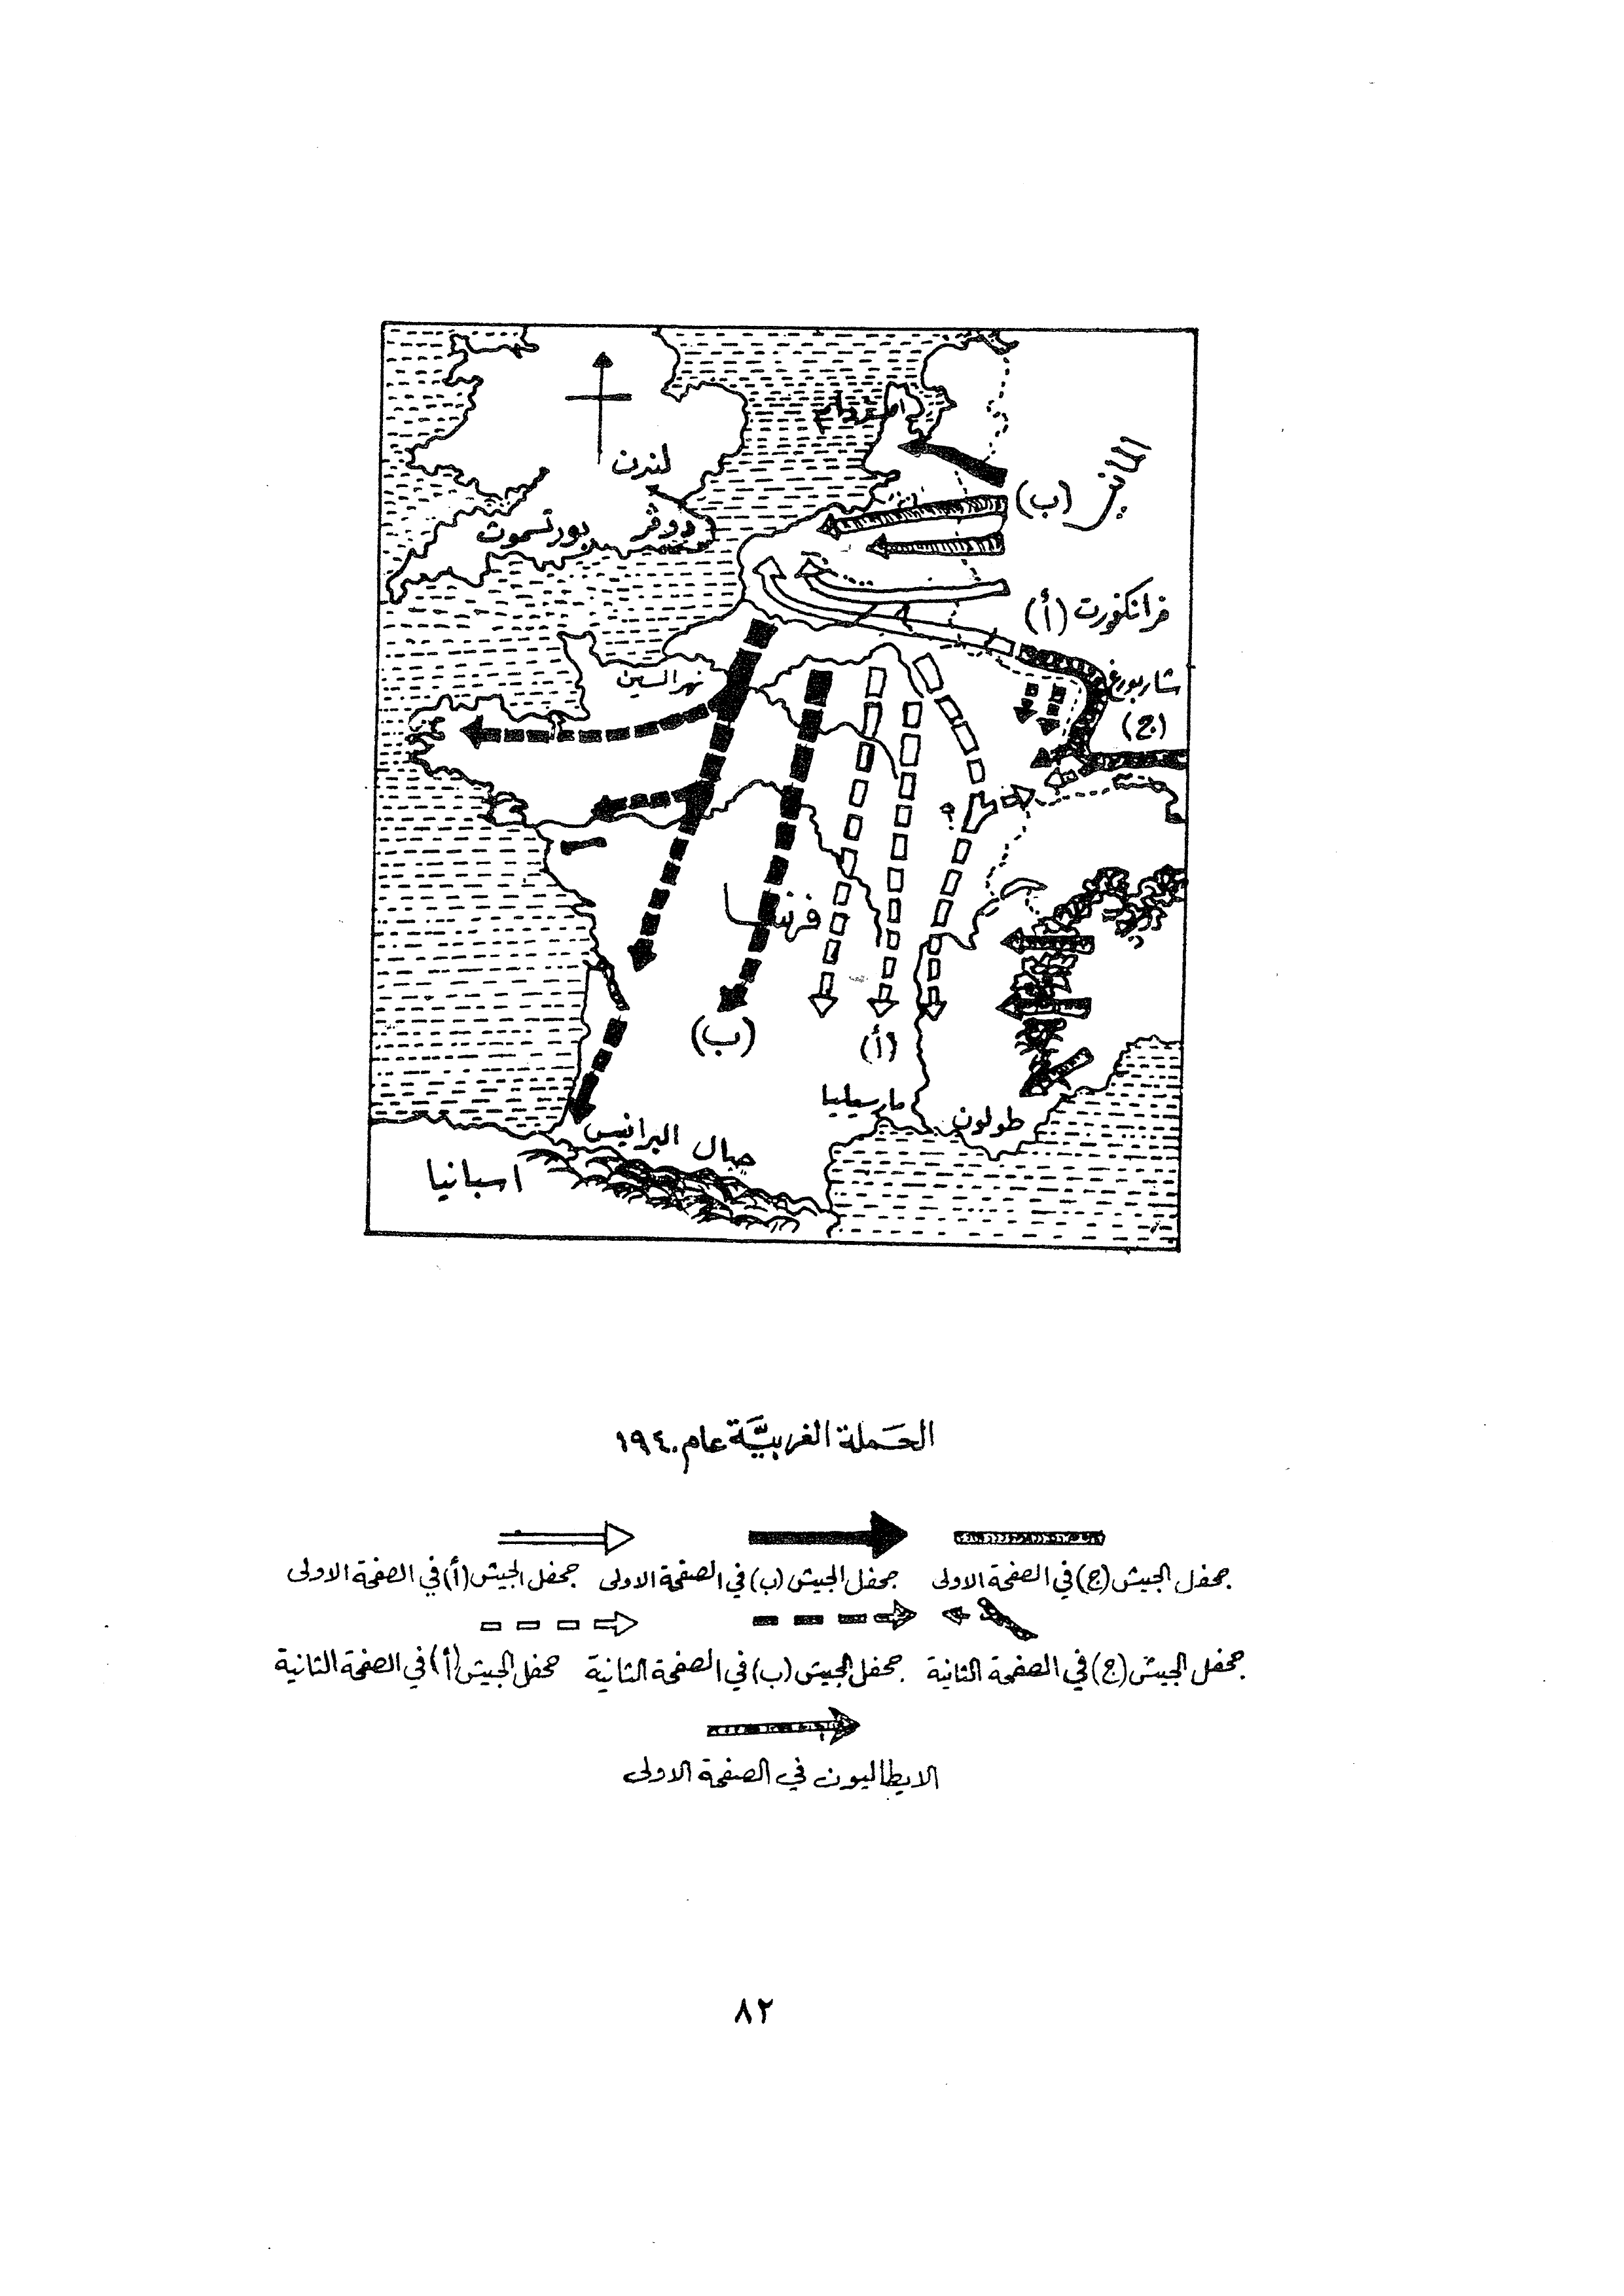 امستردام
لندن
المانيا
(ب)
دوڤر
بورتسموث
فرانكفورت (أ)
نهر السين
(ج)
فرنسا
(ب)
(أ)
مارسيليا
طولون
جبال البرانيس
اسبانيا
الحَملة الغربيَّة عام ١٩٤٠
جحفل الجيش (ج) في الصفحة الاولى جحفل الجيش (ب) في الصفحة الاولى جحفل الجيش (أ) في الصفحة الاولى
جحفل الجيش (ج) في الصفحة الثانية جحفل الجيش (ب) في الصفحة الثانية جحفل الجيش (أ) في الصفحة الثانية
الايطاليون في الصفحة الاولى
٨٢